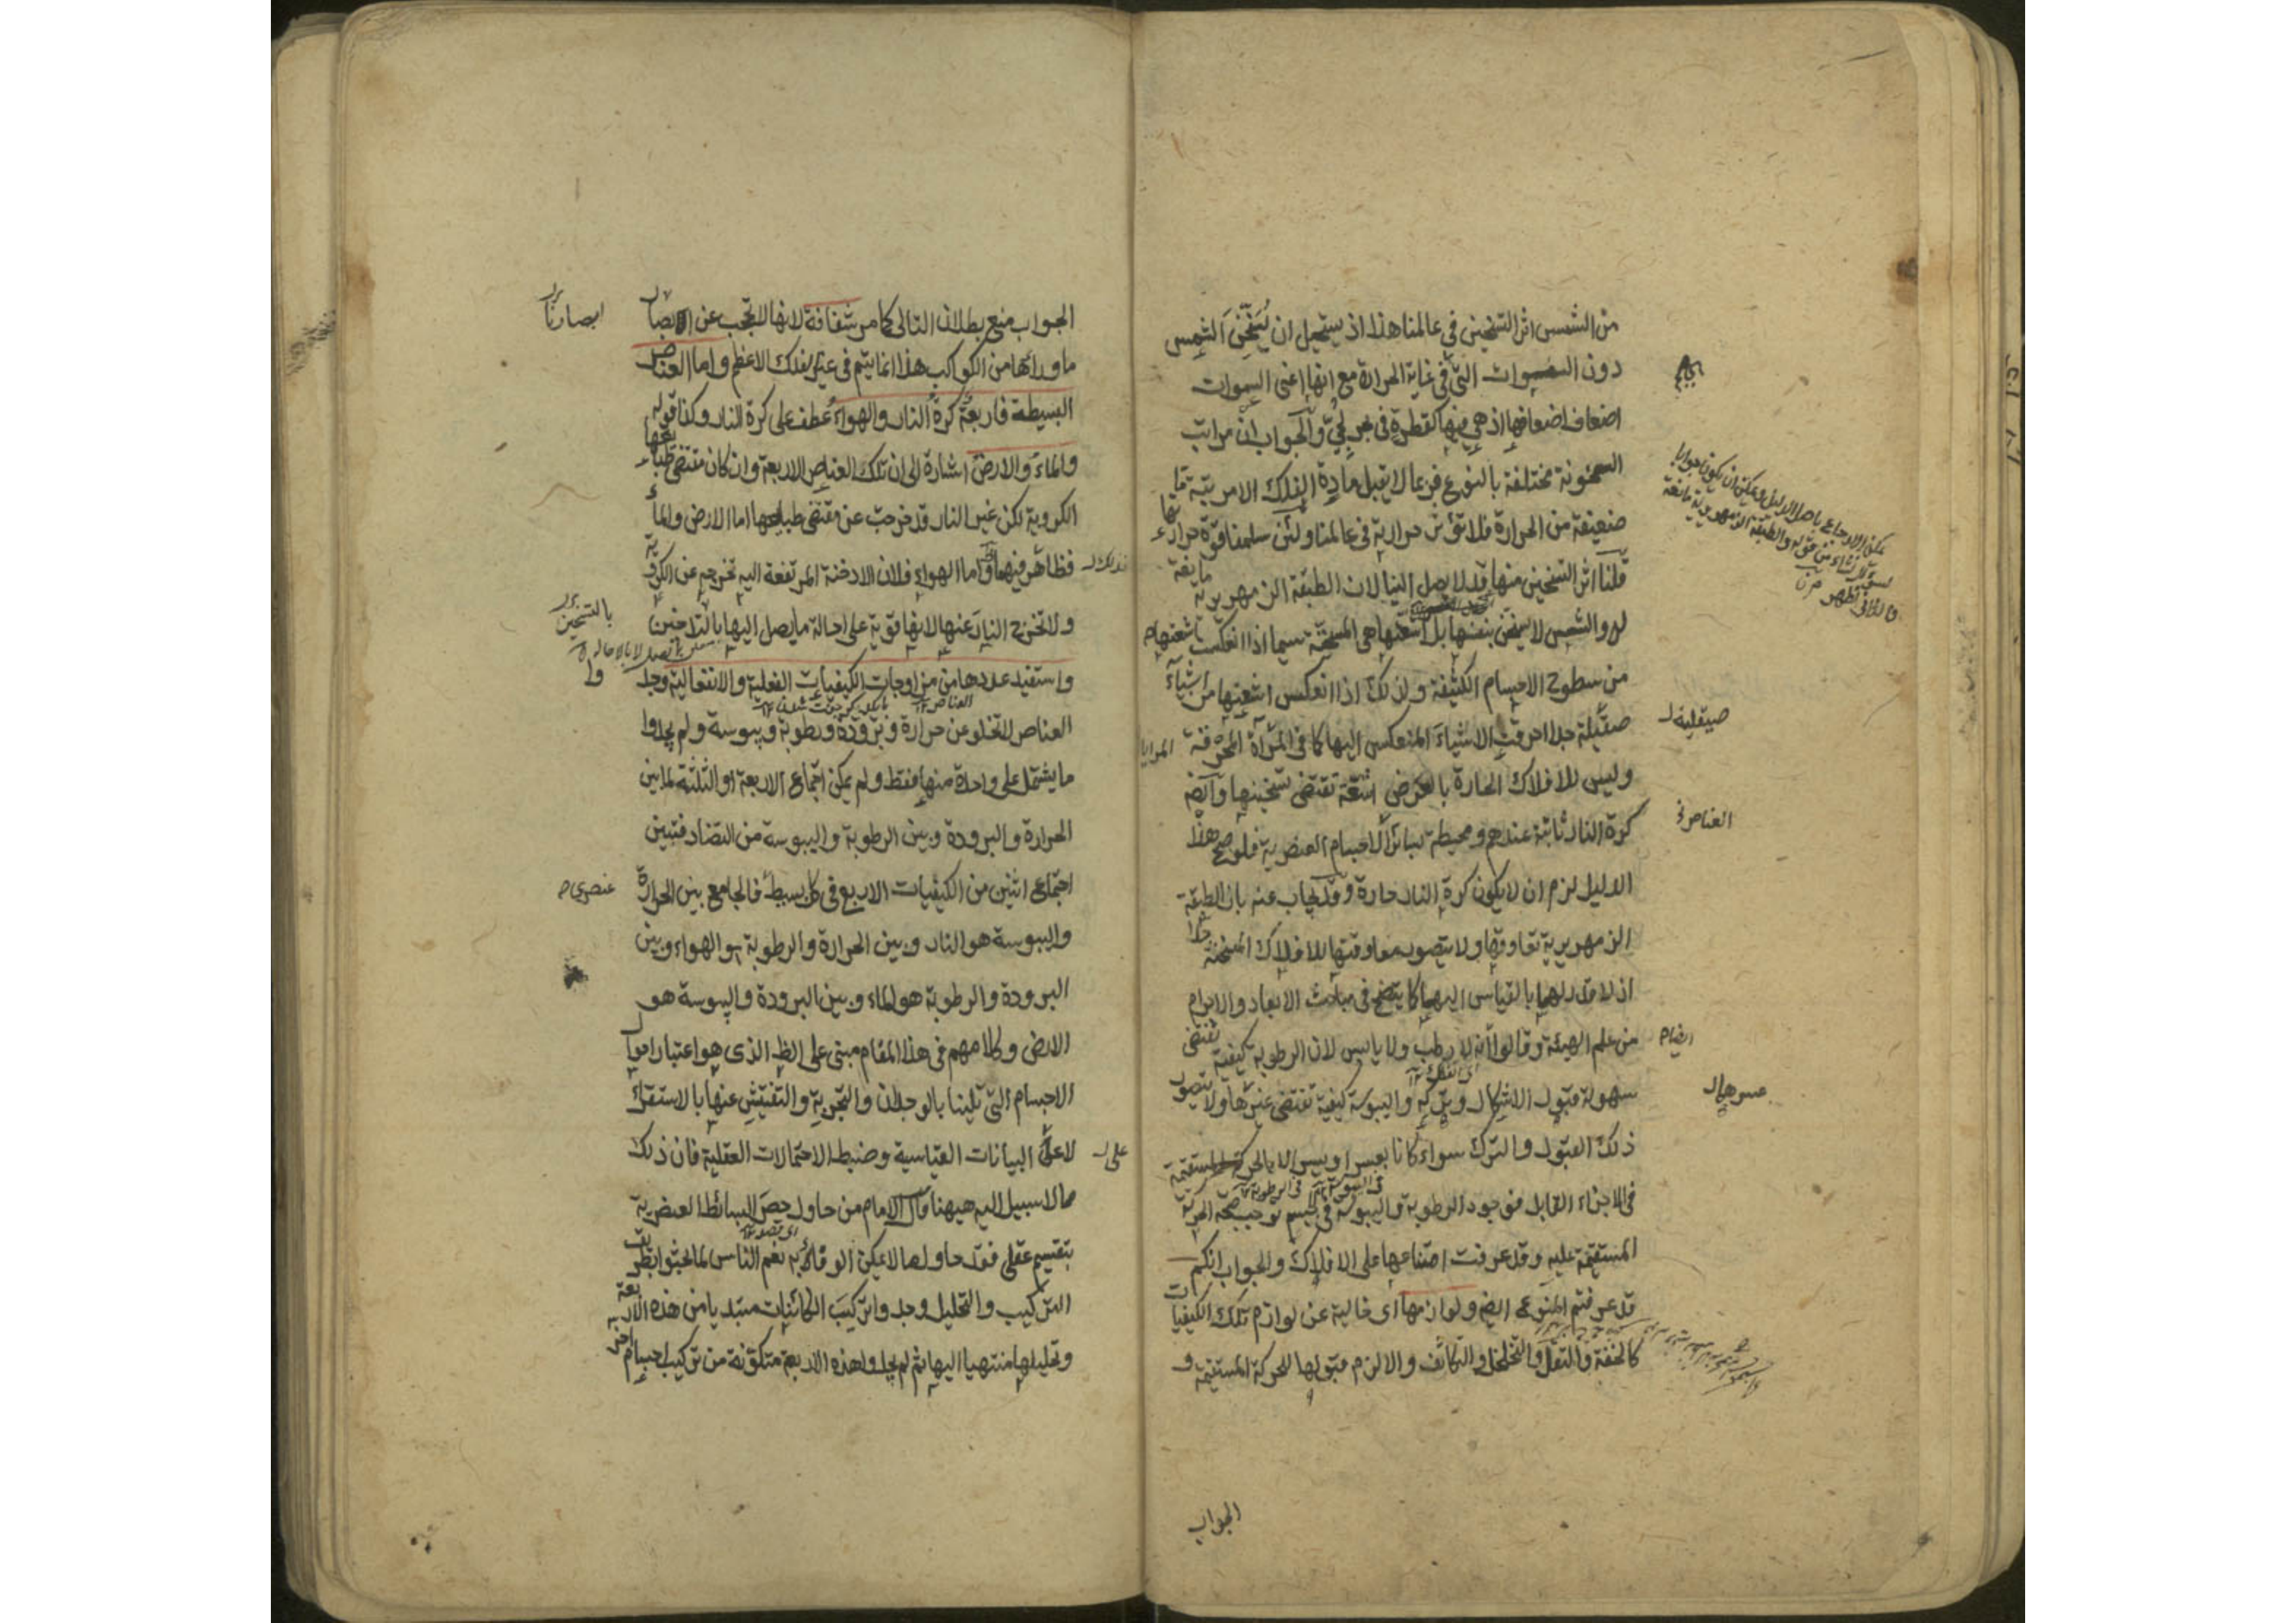 من الشمس اثر التسخين في عالمنا هذا اذ يستحيل ان يُسَخِّنَ الشمس
دون السموات التي في غاية الحرارة مع انها اعنى السموات
اضعاف اضعافها اذ هي فيها كقطرة في بحر لجي والجواب ان مراتب
السخونة مختلفة بالنوع فربما لا يقبل مادة الفلك الا مرتبة ما
ضعيفة من الحرارة فلا تؤثر حرارته في عالمنا ولئن سلمنا قوة حرارتها
قلنا اثر التسخين منها قد لا يصل الينا لان الطبقة الزمهريرية مانعة
له والشمس لا يسخن بنفسها بل اشعتها هى المسخنة سيما اذا انعكست اشعتها
من سطوح الاجسام الكثيفة ولذلك اذا انعكس اشعتها من اشياء
صقيلة جدا احرقت الاشياء المنعكس اليها كما في المرآة المحرقة
وليس للافلاك الحارة بالعرض اشعة تقتضى تسخينها وايضا
كرة النار ثابتة عندهم ومحيطة بسائر الاجسام العنصرية فلو صح هذا
الدليل لزم ان لا يكون كرة النار حارة وقد يجاب عنه بان الطبقة
الزمهريرية تقاومها ولا يتصور مقاومتها للافلاك المسخنة جدا
اذ لا قدر لها بالقياس اليها كما يتضح في مباحث الابعاد والاجرام
من علم الهيئة وقالوا انه لا رطب ولا يابس لان الرطوبة كيفية تقتضى
سهولة قبول الاشكال وتركه واليبوسة كيفية تقتضى عسرها ولا يتصور
ذلك القبول والترك سواء كانا بعسر او يسر الا بالحركة المستقيمة
في الاجزاء القابل فوجود الرطوبة واليبوسة في جسم توجب صحة الحركة
المستقيمة عليه وقد عرفت امتناعها على الافلاك والجواب انكم
قد عرفتم المنوع ايضا ولوازمها اى خالية عن لوازم تلك الكيفيات
كالخفة والثقل والتخلخل والتكاثف والا لزم قبولها للحركة المستقيمة و
الجواب
صيقلية
العناصر
ايضا
عسرهما
المرايا
الجواب منع بطلان التالى كما مر شفافة لانها لا تحجب عن الابصار
ما وراءها من الكواكب هذا انما يتم في غير الفلك الاعظم واما العناصر
البسيطة فاربعة كرة النار والهواء عطف على كرة النار وكذا قوله
والماء والارض اشارة الى ان تلك العناصر الاربعة وان كان مقتضى طباعها
الكروية لكن غير النار قد خرجت عن مقتضى طباعها اما الارض والماء
فظاهر فيهما واما الهواء فلان الادخنة المرتفعة اليه تخرجه عن الكروية
ولا تخرج النار عنها لانها قوية على احالة ما يصل اليها بالتدخين
واستفيد عددها من مزاوجات الكيفيات الفعلية والانفعالية وجدوا
العناصر لا تخلو عن حرارة وبرودة ورطوبة ويبوسة ولم يجدوا
ما يشتمل على واحدة منها فقط ولم يمكن اجتماع الاربعة او الثلثة لما بين
الحرارة والبرودة وبين الرطوبة واليبوسة من التضاد فتبين
اجتماع اثنين من الكيفيات الاربع في كل بسيط فالجامع بين الحرارة
واليبوسة هو النار وبين الحرارة والرطوبة هو الهواء وبين
البرودة والرطوبة هو الماء وبين البرودة واليبوسة هو
الارض وكلامهم في هذا المقام مبنى على الظ الذى هو اعتبار احوال
الاجسام التي تلينا بالوجدان والتجربة والتفتيش عنها بالاستقراء
لا على البيانات القياسية وضبط الاحتمالات العقلية فان ذلك
مما لا سبيل اليه هيهنا قال الامام من حاول حصر البسائط العنصرية
بتقسيم عقلى فقد حاول ما لا يمكن الوفاء به نعم الناس لما بحثوا بطريق
التركيب والتحليل وجدوا تركيب الكائنات مبتديا من هذه الاربعة
وتحليلها منتهيا اليها ثم لم يجدوا هذه الاربعة متكونة من تركيب اجسام اخر
ابصارنا
بالتسخين
عنصرى
على